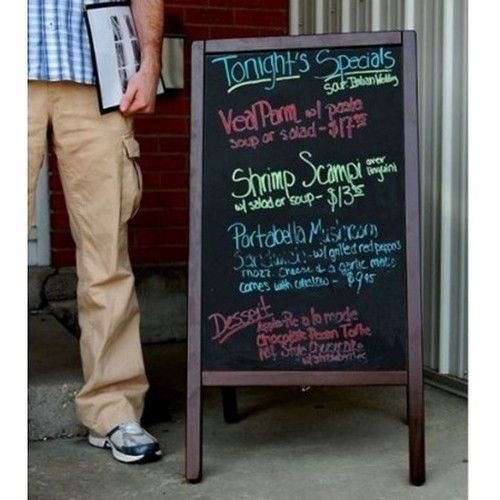 Tonight's Specials
Soup-Italian Wedding
Veal Parm w/ pasta
soup or salad - $17.95
Shrimp Scampi over linguini
w/ salad or soup - $13.95
Portabella Mushroom
Sandwich - w/ grilled red peppers
mozz. cheese & a garlic mayo
comes with coleslaw - $9.95
Dessert
Apple Pie a la mode
Chocolate Pecan Torte
N.Y. Style Cheesecake
w/ strawberries